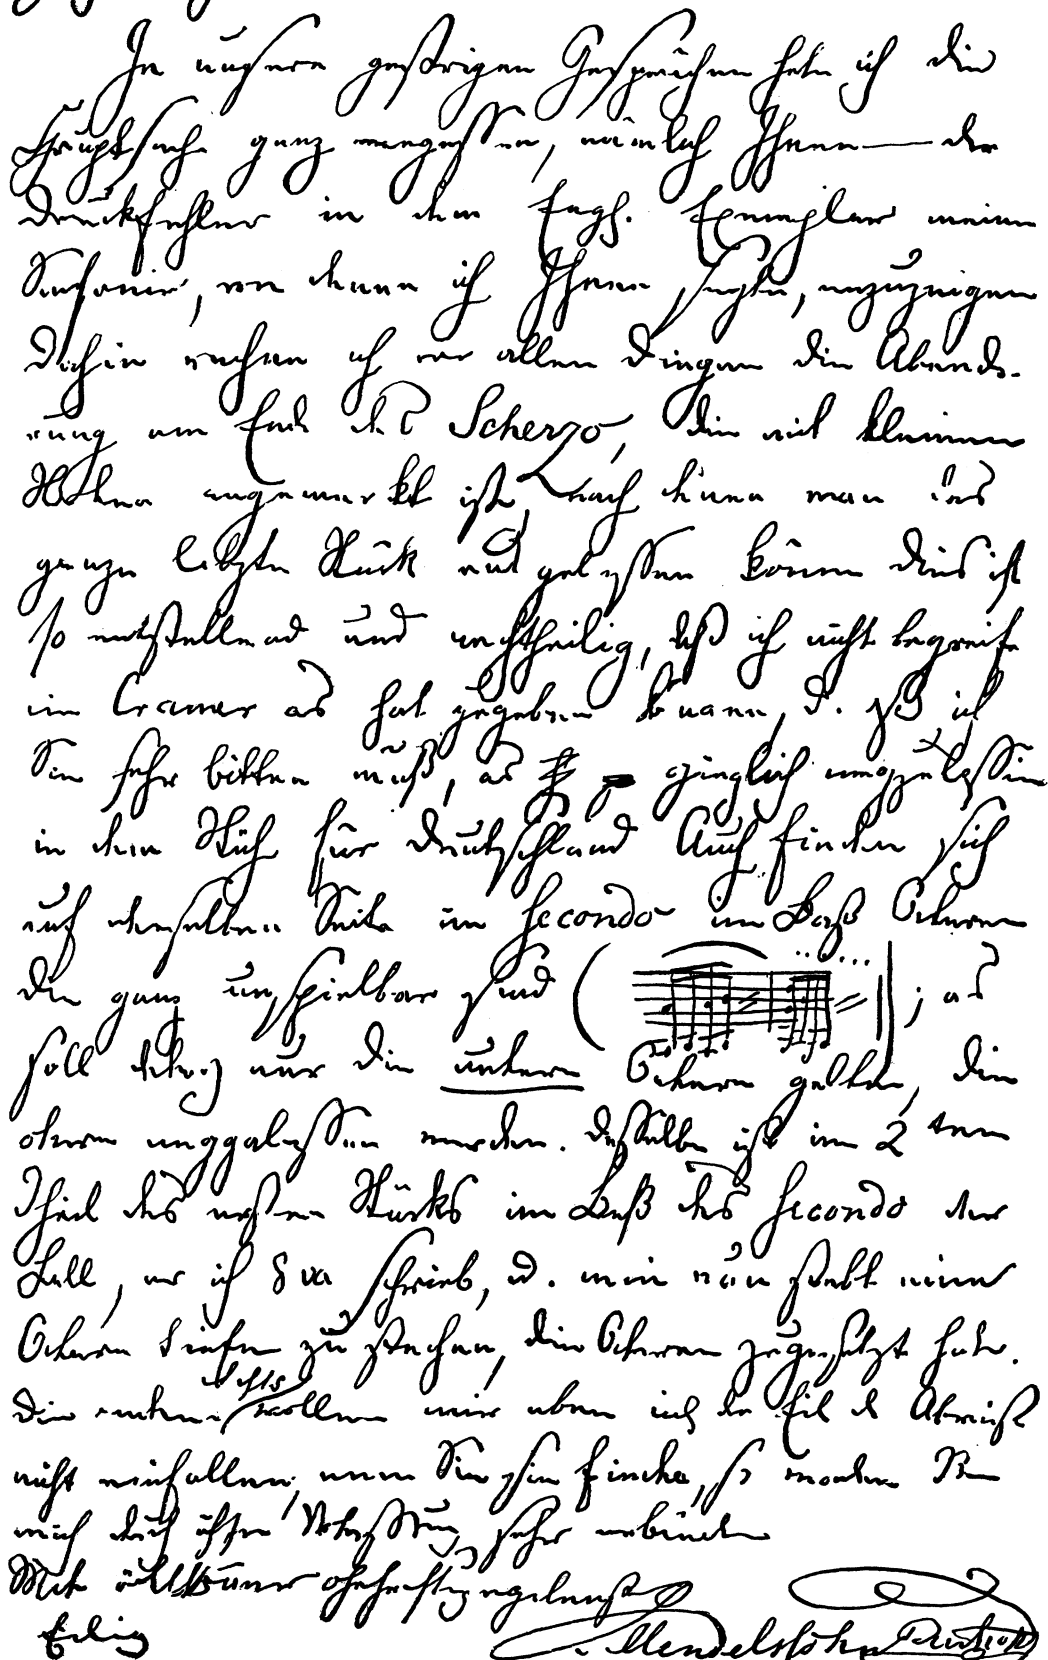 In unsern gestrigen Gesprächen habe ich die
Hauptsache ganz vergessen, nämlich Ihnen — die
Druckfehler in dem Engl. Exemplar meiner
Sinfonie, von denen ich Ihnen sagte, anzuzeigen
Dahin rechne ich vor allen Dingen die Abände-
rung am Ende des Scherzo, die mit kleinen
Noten angemerkt ist, nach denen man das
ganze letzte Stück auslassen könne dies ist
so entstellend und nachtheilig, daß ich nicht begreife
wie Cramer es hat zugeben können, u. daß ich
Sie sehr bitten muß, es gänzlich wegzulassen
in dem Stich für Deutschland Auch finden sich
auf derselben Seite im Secondo im Baß Octaven
die ganz unspielbar sind ( ) ; es
soll nur die untern Octaven gelten, die
obern weggelassen werden. Dasselbe ist im 2ten
Theil des ersten Stücks im Baß des Secondo der
Fall, wo ich 8va schrieb, u. man nun statt eine
Octave tiefer zu stechen, die Octaven zugesetzt hat.
Die andern wollen mir eben in der Eil der Abreise
nicht einfallen, wenn Sie sie finden, so werden Sie
mich durch sehr verbinden
Mit
Eilig Mendelssohn Bartholdy